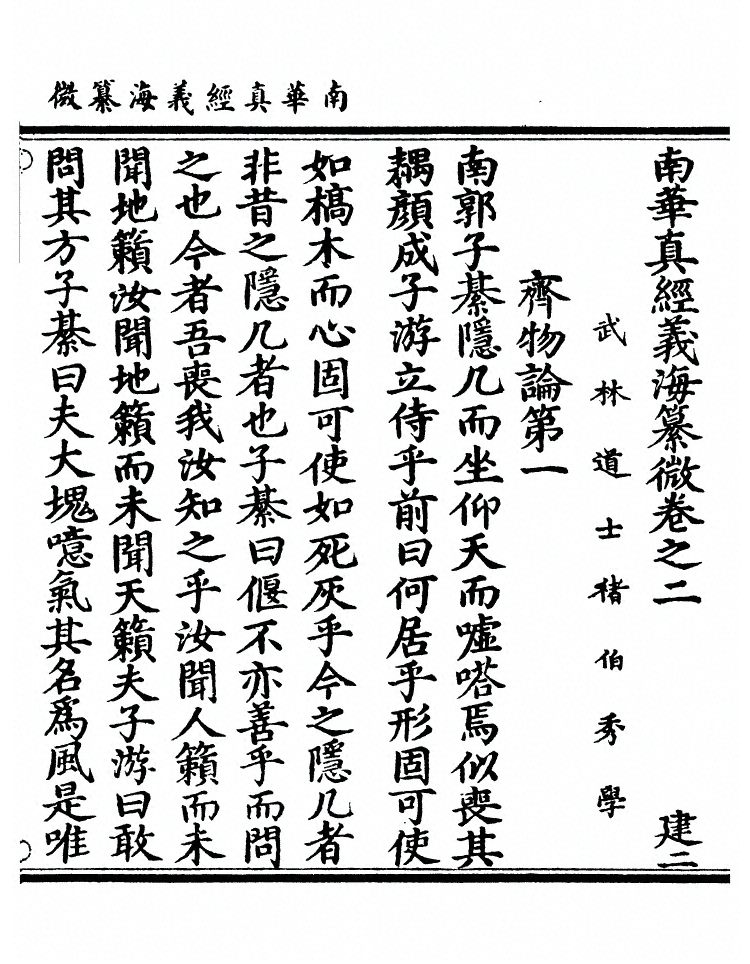 南華真經義海纂微
南華真經義海纂微卷之二 建二
武林道士褚伯秀學
齊物論第一
南郭子綦隱几而坐仰天而噓嗒焉似喪其
耦顏成子游立侍乎前曰何居乎形固可使
如槁木而心固可使如死灰乎今之隱几者
非昔之隱几者也子綦曰偃不亦善乎而問
之也今者吾喪我汝知之乎汝聞人籟而未
聞地籟汝聞地籟而未聞天籟夫子游曰敢
問其方子綦曰夫大塊噫氣其名爲風是唯